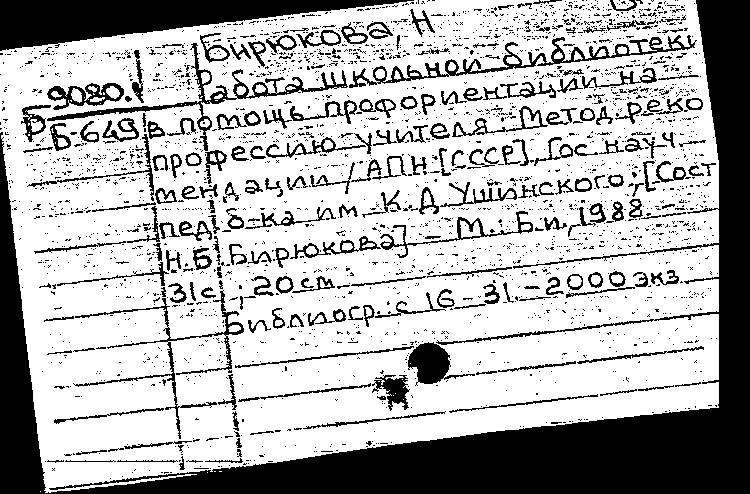 Бирюкова, Н
Работа школьной библиотеки
9080.
Р Б-649
в помощь профориентации на
профессию учителя. Метод. реко
мендации / АПН [СССР], Гос науч
пед б-ка им. К.Д Ушинского; [Сост
Н.Б Бирюкова] – М.: Б.и, 1988. –
31с ; 20см.
Библиогр.: с 16-31. – 2000 экз.